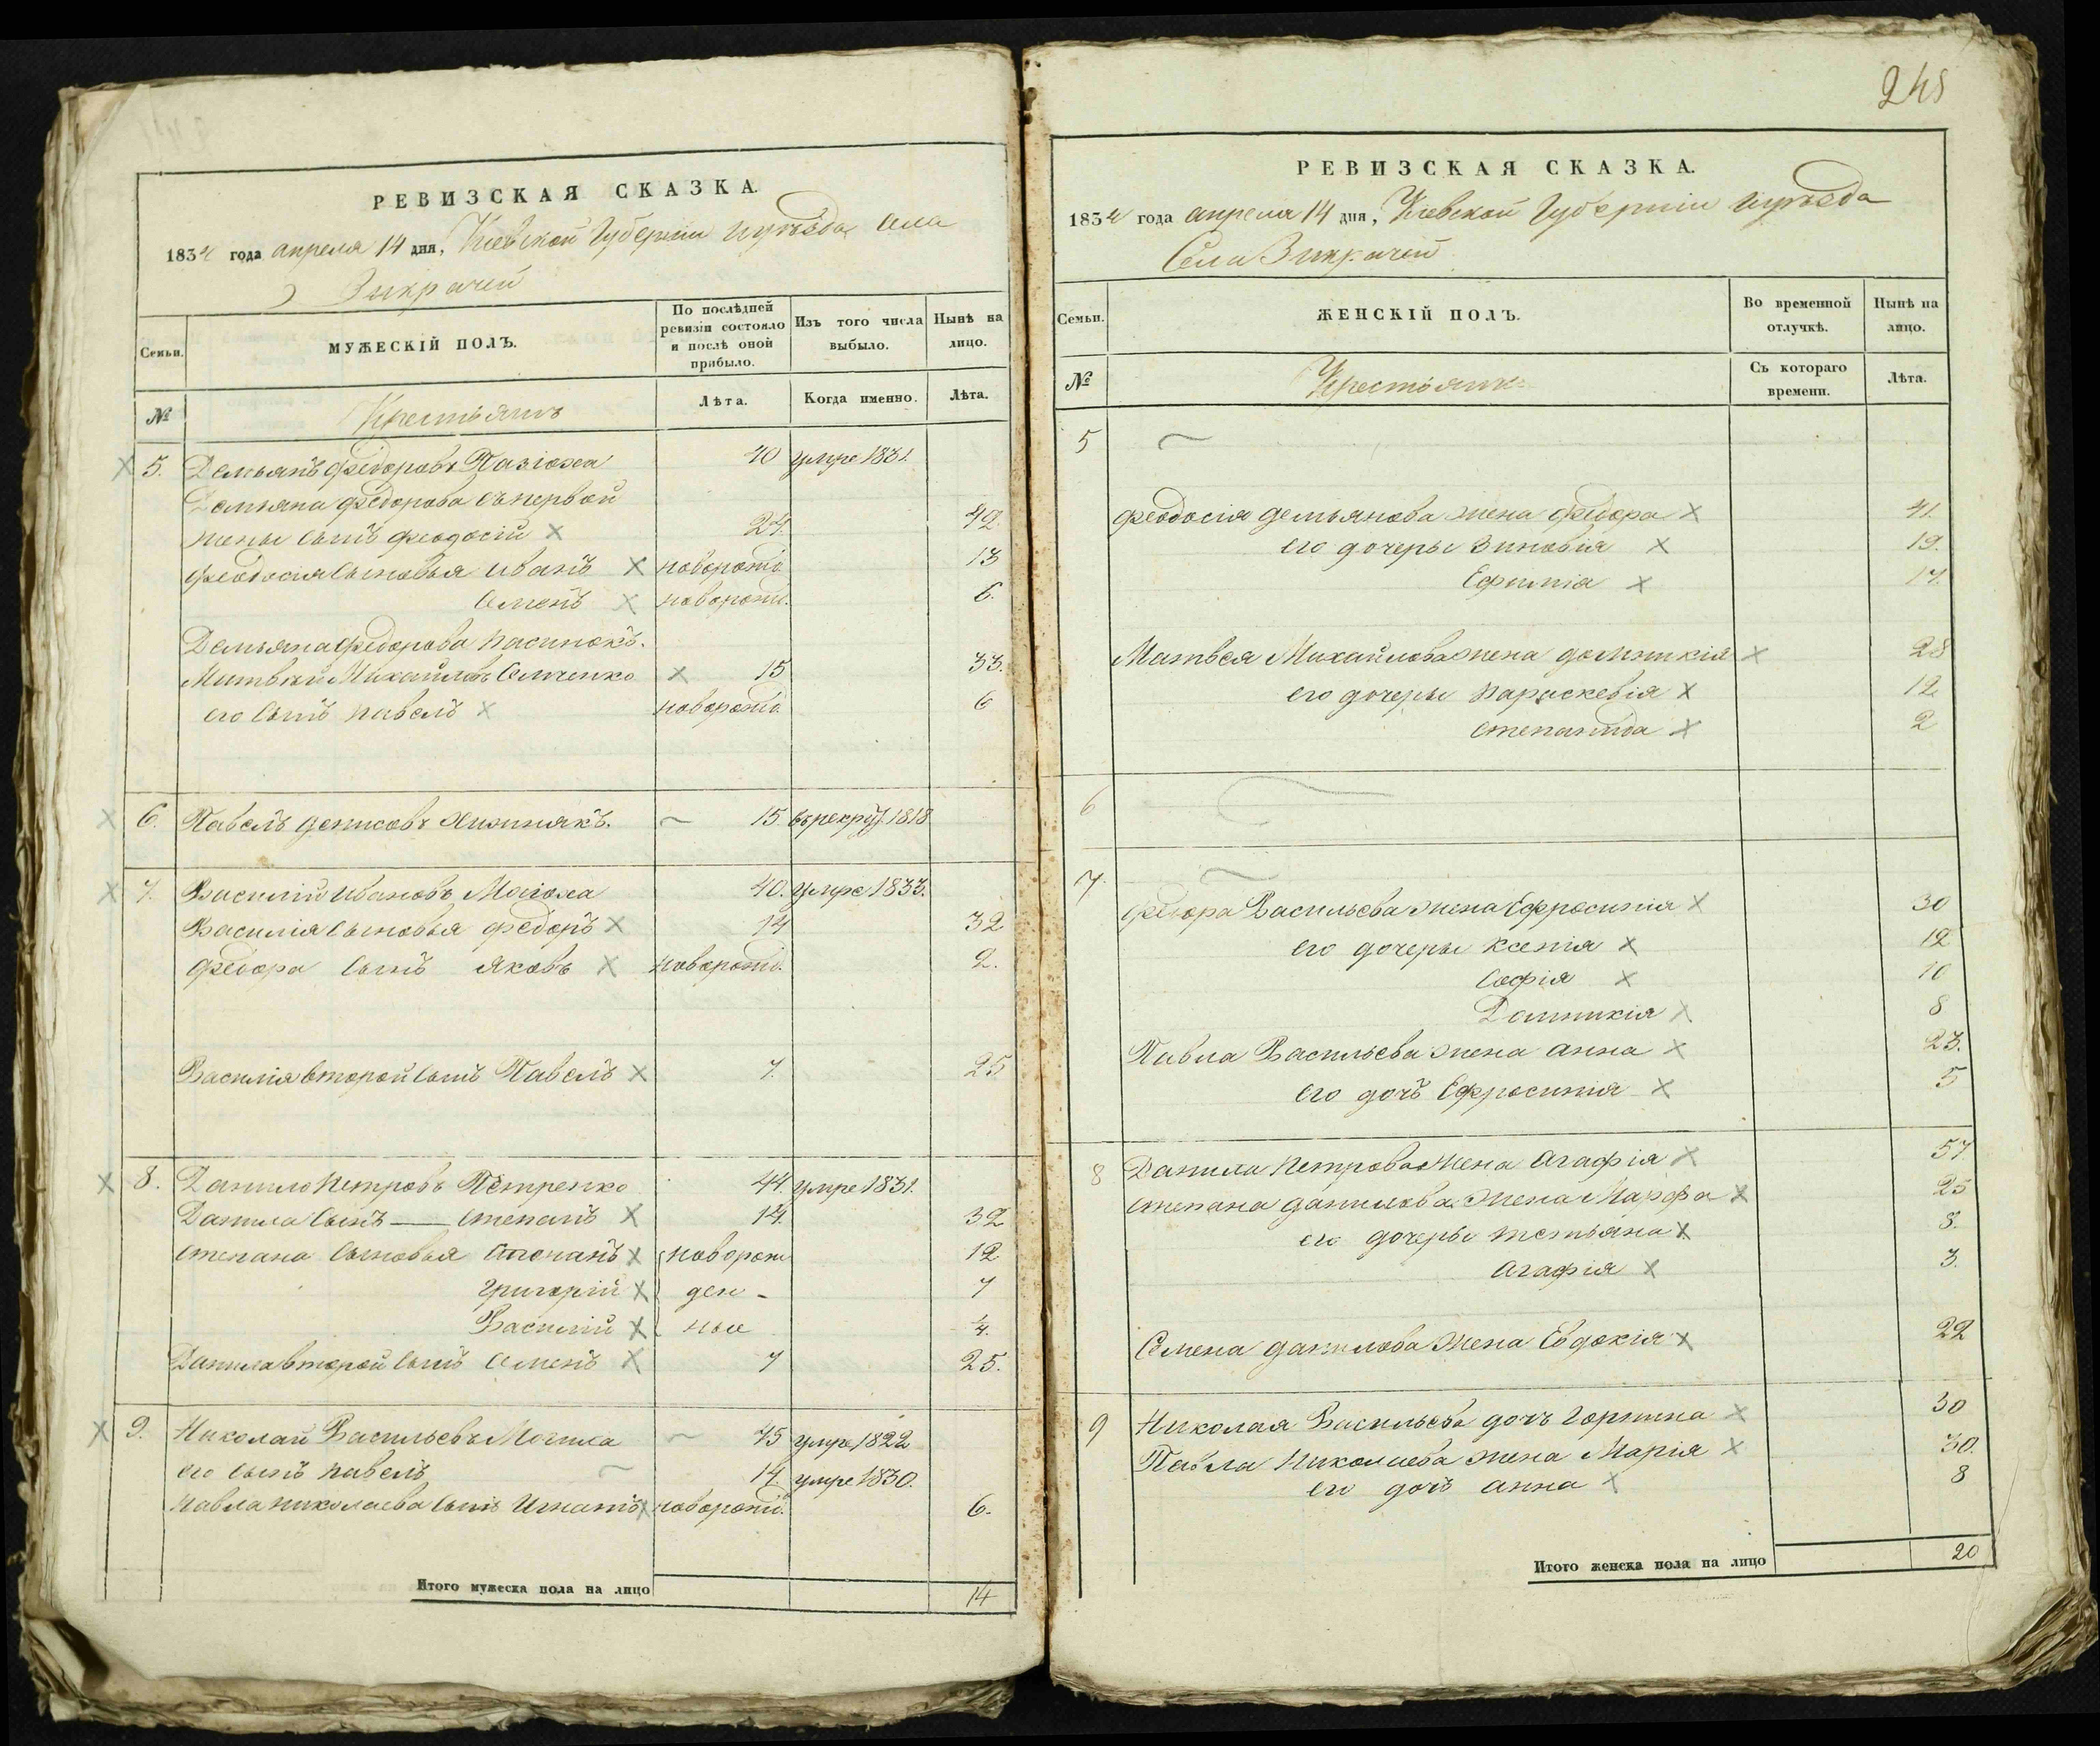 РЕВИЗСКАЯ СКАЗКА.
1834 года апреля 14 дня, Киевской Губерніи иуѣзда Села
Зикрачей
Семьи.
МУЖЕСКІЙ ПОЛЪ.
По послѣдней ревизіи состояло и послѣ оной прибыло.
Изъ того числа выбыло.
Нынѣ на лицо.
№
Крестьянъ
Лѣта.
Когда именно.
Лѣта.
5. Демьянъ Федоровъ 40 умре 1831.
Демьяна Федорова съ первой
жены сынъ Феодосій 24. 42.
Феодосія сыновья Иванъ новорожд. 13
Семенъ новорожд. 6.
Демьяна Федорова пасинокъ.
Матвей Михайловъ Семченко 15 33.
его сынъ Павелъ новорожд. 6
6. Павелъ Денисовъ Хижнякъ. 15. въ рекрут. 1818
7. Василій Ивановъ 40. умре 1833.
Василія сыновья Федоръ 14 32
Федора сынъ Яковъ новорожд. 2.
Василія второй сынъ Павелъ 7. 25
8. Данило Петровъ Петренко 44. умре 1831.
Данила сынъ — Степанъ 14. 32
Степана сыновья новорож 12
Григорій ден- 7
Василій ные 1/4.
Данила второй сынъ Семенъ 7 25.
9. Николай Васильевъ Могила 45 умре 1822
его сынъ Павелъ 14. умре 1830.
Павла Николаева сынъ Игнатъ новорожд. 6.
Итого мужеска пола на лицо 14
248
РЕВИЗСКАЯ СКАЗКА.
1834 года апреля 14 дня, Киевской Губерніи иуѣзда
Села Зикрачей
Семьи.
ЖЕНСКІЙ ПОЛЪ.
Во временной отлучкѣ.
Нынѣ на лицо.
№
Крестьянъ
Съ котораго времени.
Лѣта.
5
Феодосія Демьянова жена Федора 41.
его дочеры Зиновія 19.
Ефимія 17.
Матвея Михайлова жена Домникія 28
его дочеры Параскевія 12
Степанида 2
6
7.
Федора Васильева жена Ефросинія 30
его дочеры Ксенія 12
Софія 10
Домникія 8
Павла Васильева жена Анна 23.
его дочъ Ефросинія 5
8 Данила Петрова жена Агафія 57
Степана Данилова жена Марфа 25
его дочеры Тетьяна 8.
Агафія 3.
Семена Данилова жена Евдокія 22
9 Николая Васильева дочъ Горпина 30
Павла Николаева жена Марія 30.
его дочъ Анна 8
Итого женска пола на лицо 20